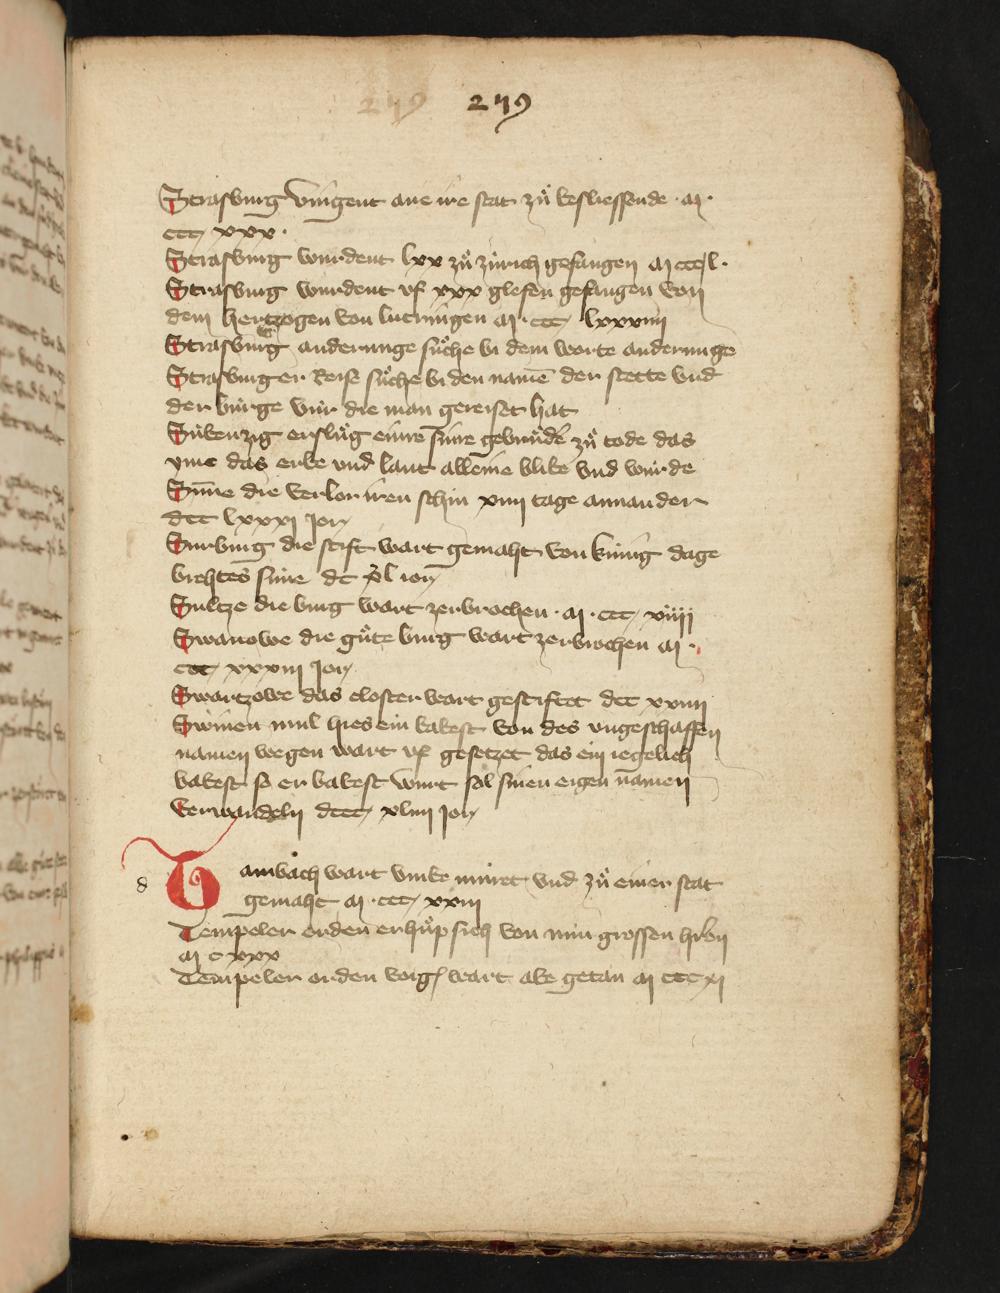 279 279
Strasburg vingent ane ire stat zuͦ besliessende · m ·
ccc xxx ·
Strasburg wurdent lxx zuͦ zürich gefangen m ccc l ·
Strasburg wurdent uf xxx glefen gefangen von
dem hertzogen von lutringen m · ccc lxxxiiii
Strasburg anderunge suͦche bi dem worte anderunge
Strasburger Reise suͦche bi den namē der stette vnd
der bürge vür die man gereiset hat
erslüg sine gebruͦder zuͦ tode das
yme das erbe vnd lant alleine blibe vnd würde
Sūne die verlor iren schin xviii tage annander
dcc lxxxi jor
Surburg die stift wart gemaht von künig dage
brehtes sune dc xl ior
Sultze die burg wart zerbrochen · m · ccc xiiii
Swanowe die guͦte burg wart zerbrochen m ·
ccc xxxiii jor
Swartzowe das closter wart gestiftet dcc xxiiii
Swinen mul hies ein babest von des ungeschaffen
namen wegen wart uf gesetzet das ein iegelich
babest so er babest wurt sol sinen eigen namen
verwandeln dccc xliiii jor
d Tambach wart vmbe muret vnd zuͦ einer stat
gemaht m · ccc xxiii
Tempeler orden erhuͦp sich von nün grossen hrͤn
m c xxx
Tempeler orden vorgͭ wart abe getan m ccc xi